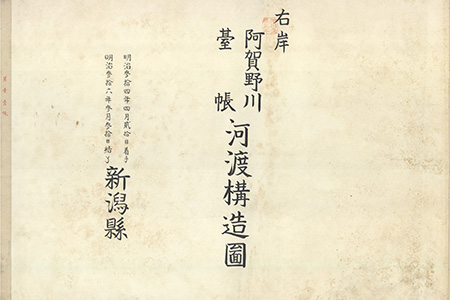 右岸
阿賀野川
臺帳
河渡構造圖
明治參拾四年四月貳拾日着手
明治參拾六年參月參拾日結了
新潟縣